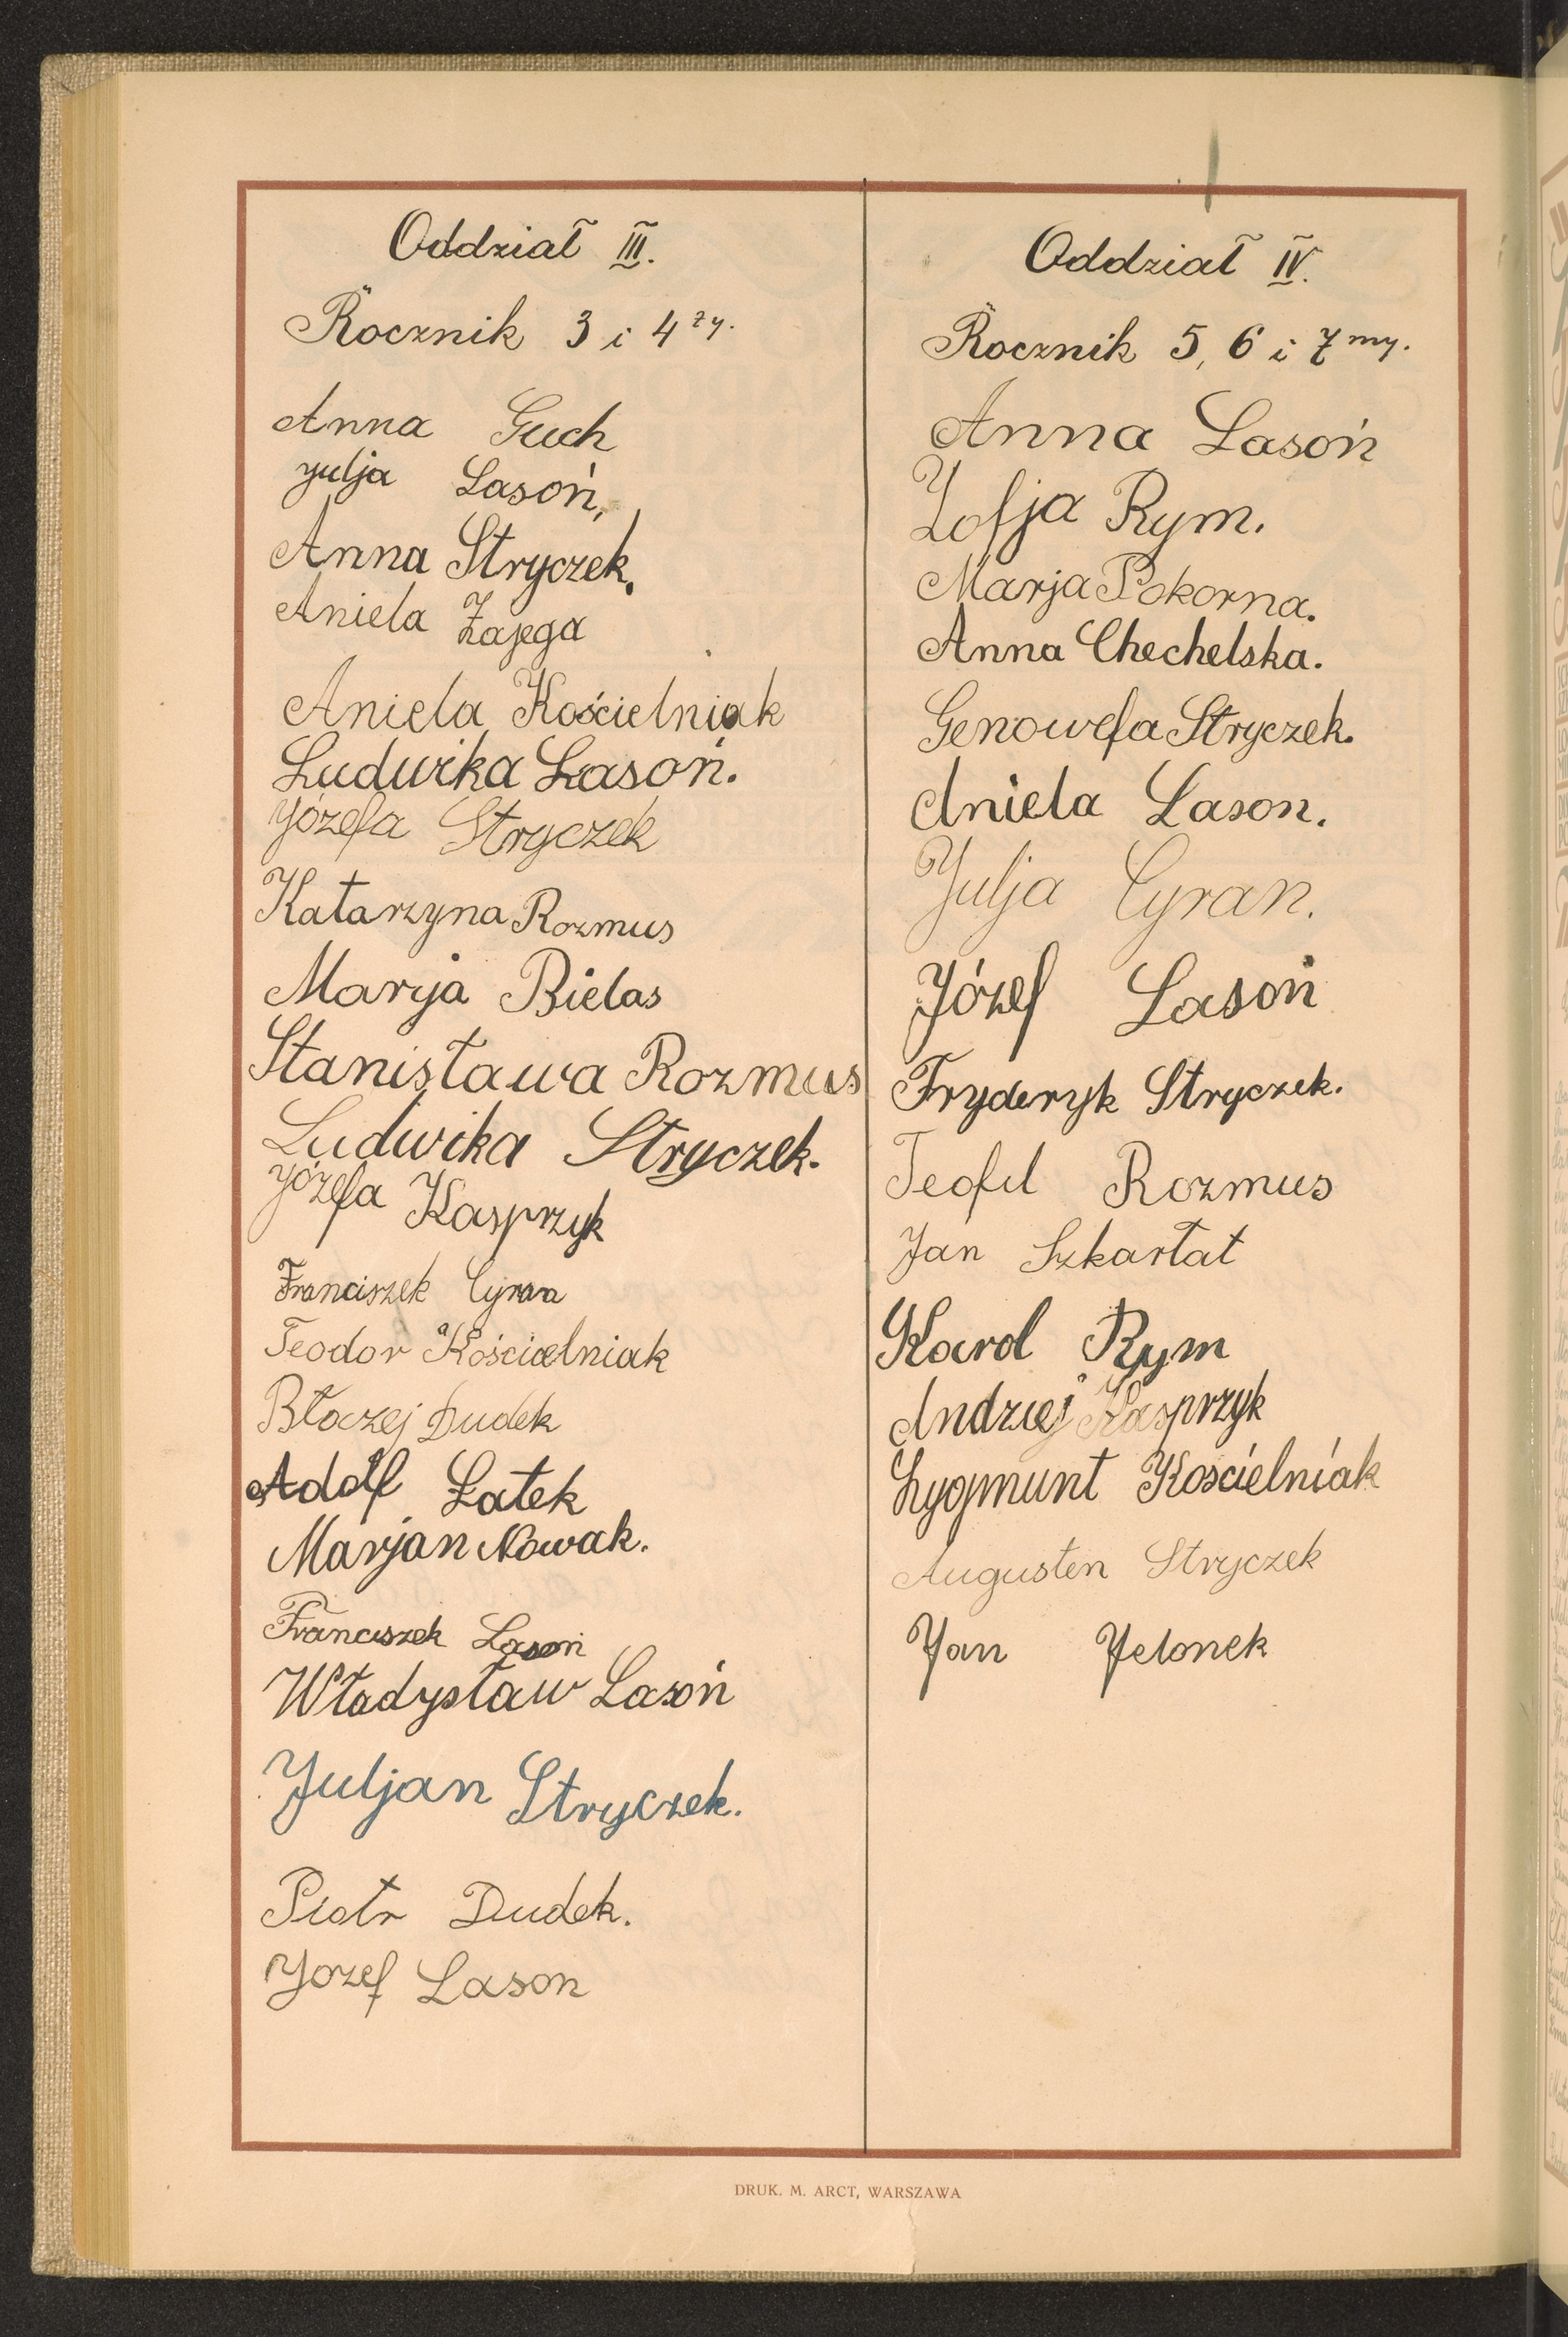 Oddział III.
Rocznik 3 i 4ty.
Anna Guch
Julja Lasoń,
Anna Stryczek.
Aniela Zajega
Aniela Kościelniak
Ludwika Lasoń.
Józefa Stryczek
Katarzyna Rozmus
Marja Bielas
Stanisława Rozmus
Ludwika Stryczek.
Józefa Kasprzyk
Franciszek Cyran
Teodor Kościelniak
Błaczej Dudek
Adolf Łatek
Marjan Nowak.
Franciszek Lasoń
Władysław Lasoń
Juljan Stryczek.
Piotr Dudek.
Jozef Lason
Oddział IV.
Rocznik 5, 6 i 7my.
Anna Lasoń
Zofja Rym.
Marja Pokorna.
Anna Chechelska.
Genowefa Stryczek.
Aniela Lason.
Julja Cyran.
Józef Lasoń
Fryderyk Stryczek.
Teofil Rozmus
Jan Szkarłat
Karol Rym
Andrzej Kasprzyk
Zygmunt Kościelniak
Augusten Stryczek
Jan Jelonek
DRUK. M. ARCT, WARSZAWA